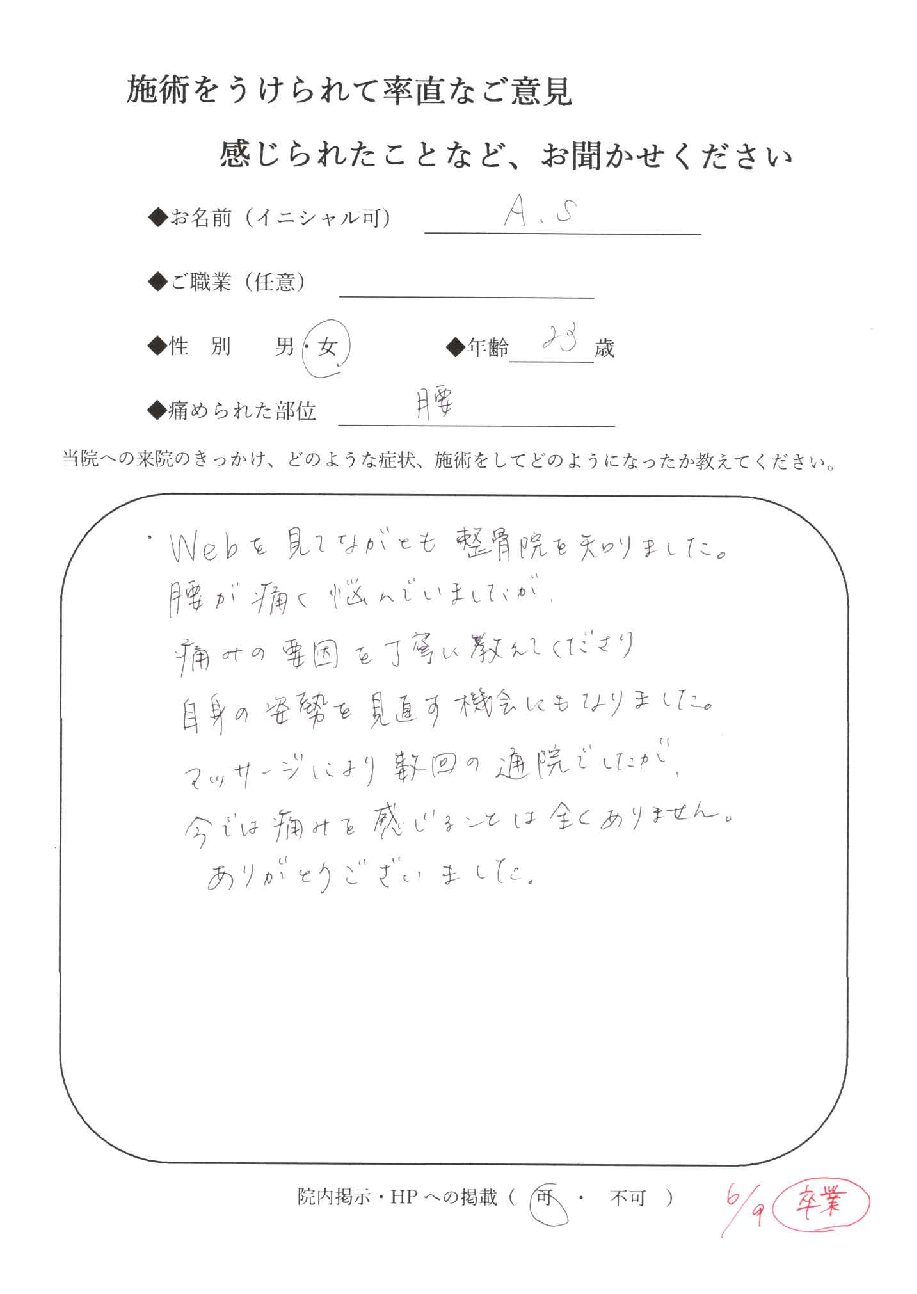 施術をうけられて率直なご意見
感じられたことなど、お聞かせください
◆お名前（イニシャル可） A.S
◆ご職業（任意）
◆性 別 男・女 ◆年齢 23 歳
◆痛められた部位 腰
当院への来院のきっかけ、どのような症状、施術をしてどのようになったか教えてください。
・Webを見てながとも整骨院を知りました。
腰が痛く悩んでいましたが、
痛みの要因を丁寧に教えてくださり
自身の姿勢を見直す機会にもなりました。
マッサージにより数回の通院でしたが、
今では痛みを感じることは全くありません。
ありがとうございました。
院内掲示・HPへの掲載（ 可 ・ 不可 ） 6/9 卒業